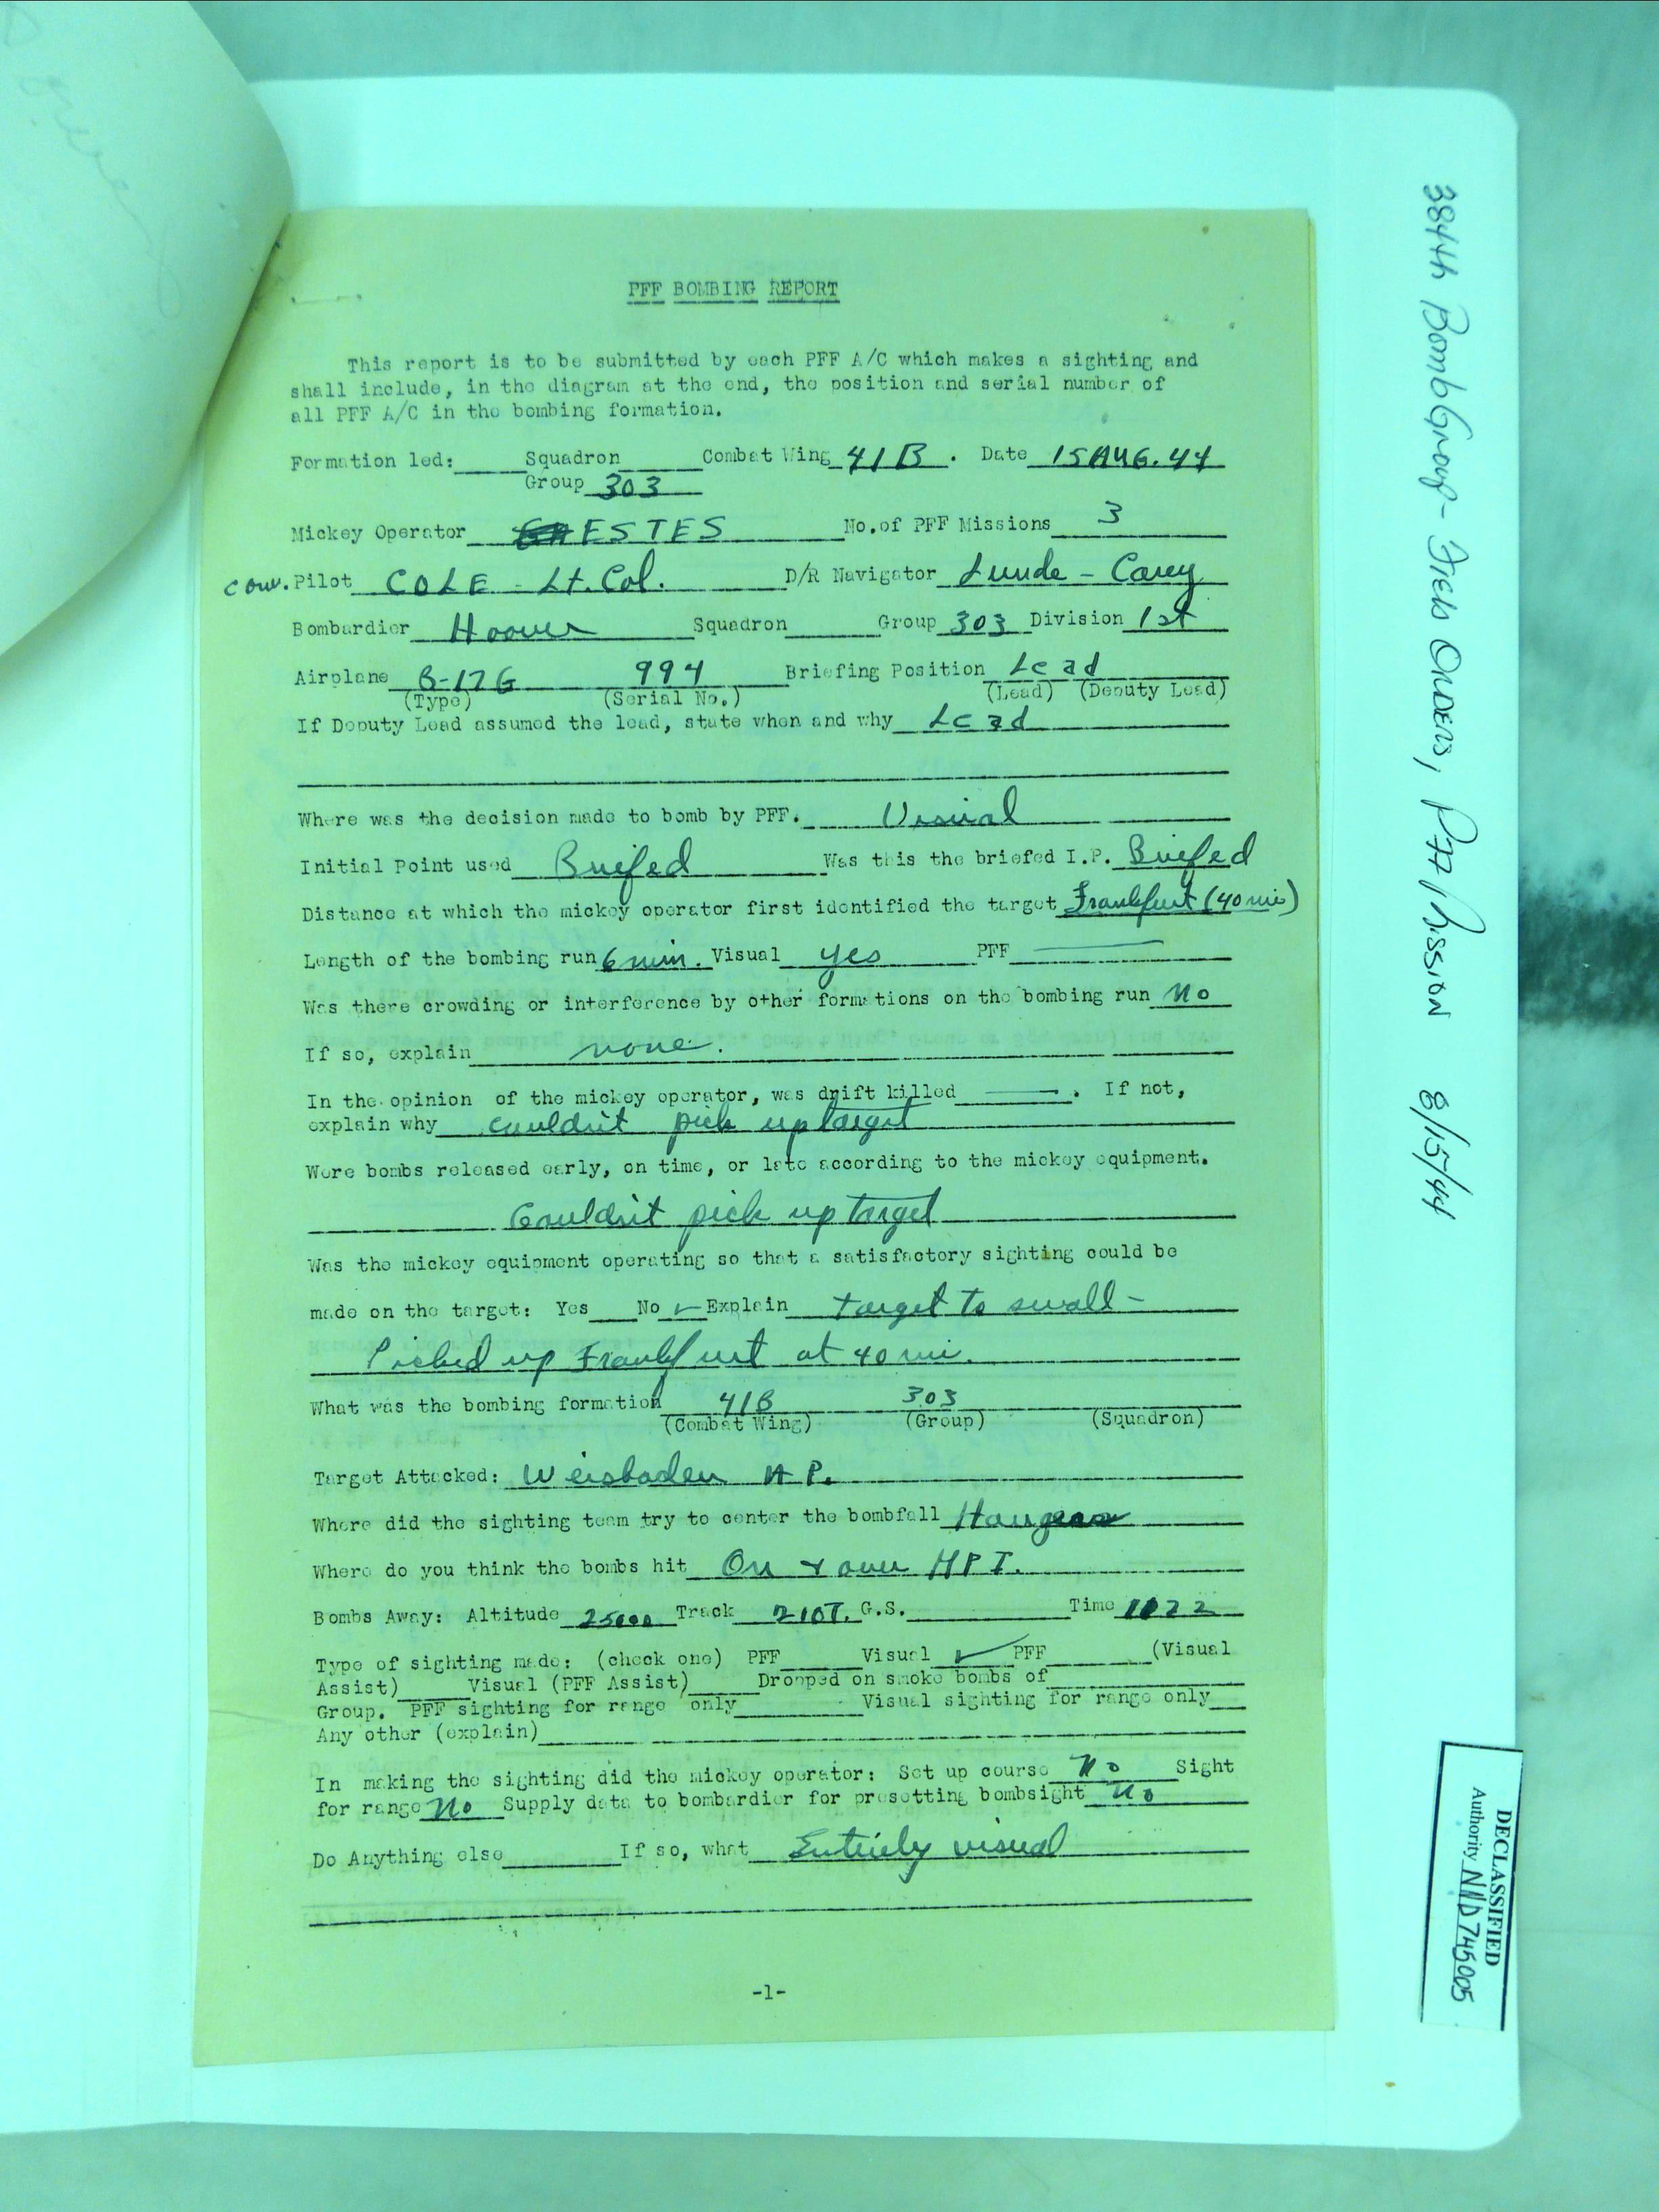 PFF BOMBING REPORT
This report is to be submitted by each PFF A/C which makes a sighting and
shall include, in the diagram at the end, the position and serial number of
all PFF A/C in the bombing formation.
Formation led: Squadron Combat Wing 41B. Date 15 AUG. 44
Group 303
Mickey Operator ESTES No. of PFF Missions 3
Com. Pilot COLE - Lt. Col. D/R Navigator Lunde - Carey
Bombardier Hoover Squadron Group 303 Division 1st
Airplane B-17G 994 Briefing Position Lead
(Type) (Serial No.) (Lead) (Deputy Lead)
If Deputy Lead assumed the lead, state when and why Lead
Where was the decision made to bomb by PFF. Visual
Initial Point used Briefed Was this the briefed I.P. Briefed
Distance at which the mickey operator first identified the target Frankfurt (40 mi)
Length of the bombing run 6 min. Visual yes PFF —
Was there crowding or interference by other formations on the bombing run No
If so, explain none.
In the opinion of the mickey operator, was drift killed —. If not,
explain why couldn't pick up target
Were bombs released early, on time, or late according to the mickey equipment.
Couldn't pick up target
Was the mickey equipment operating so that a satisfactory sighting could be
made on the target: Yes No ✓ Explain target to small -
Picked up Frankfurt at 40 mi.
What was the bombing formation 41B 303
(Combat Wing) (Group) (Squadron)
Target Attacked: Weisbaden A P.
Where did the sighting team try to center the bombfall Hangers
Where do you think the bombs hit On & over MPI.
Bombs Away: Altitude 25000 Track 210T. G.S. Time
Type of sighting made: (check one) PFF Visual ✓ PFF (Visual
Assist) Visual (PFF Assist) Dropped on smoke bombs of
Group. PFF sighting for range only Visual sighting for range only
Any other (explain)
In making the sighting did the mickey operator: Set up course No Sight
for range No Supply data to bombardier for presetting bombsight No
Do Anything else If so, what Entirely visual
-1-
384th Bomb Group - Field Orders, Pff Mission 8/15/44
DECLASSIFIED
Authority NND 745005